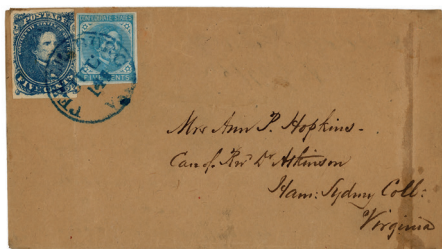 POSTAGE
FIVE
CONFEDERATE STATES
FIVE CENTS
14
VA
Mrs Ann P. Hopkins-
Care of Revd Dr Atkinson
Ham: Sydney Coll:
Virginia